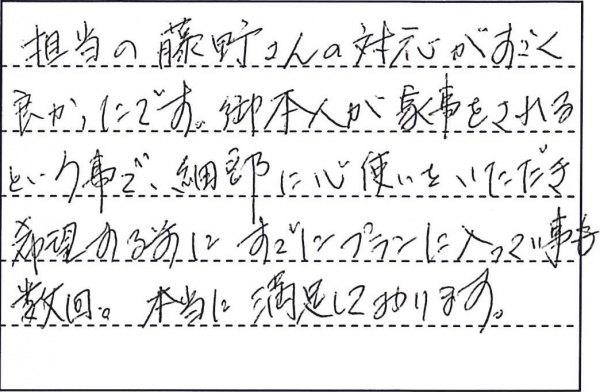 担当の藤野さんの対応がすごく
良かったです。御本人が家事をされる
という事で、細部に心使いをいただき
希望する前にすでにプランに入ってい事も
数回。本当に満足しております。